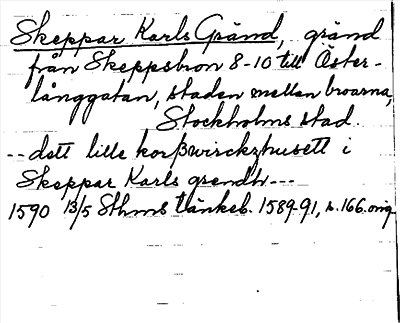 Skeppar Karls Gränd, gränd
från Skeppsbron 8-10 till Öster-
långgatan, staden mellan broarna,
Stockholms stad.
-- dett lille korßwirckzhusett i
Skeppar Karls grendh ---
1590 13/5 Sthms tänkeb. 1589-91, s. 166. orig.